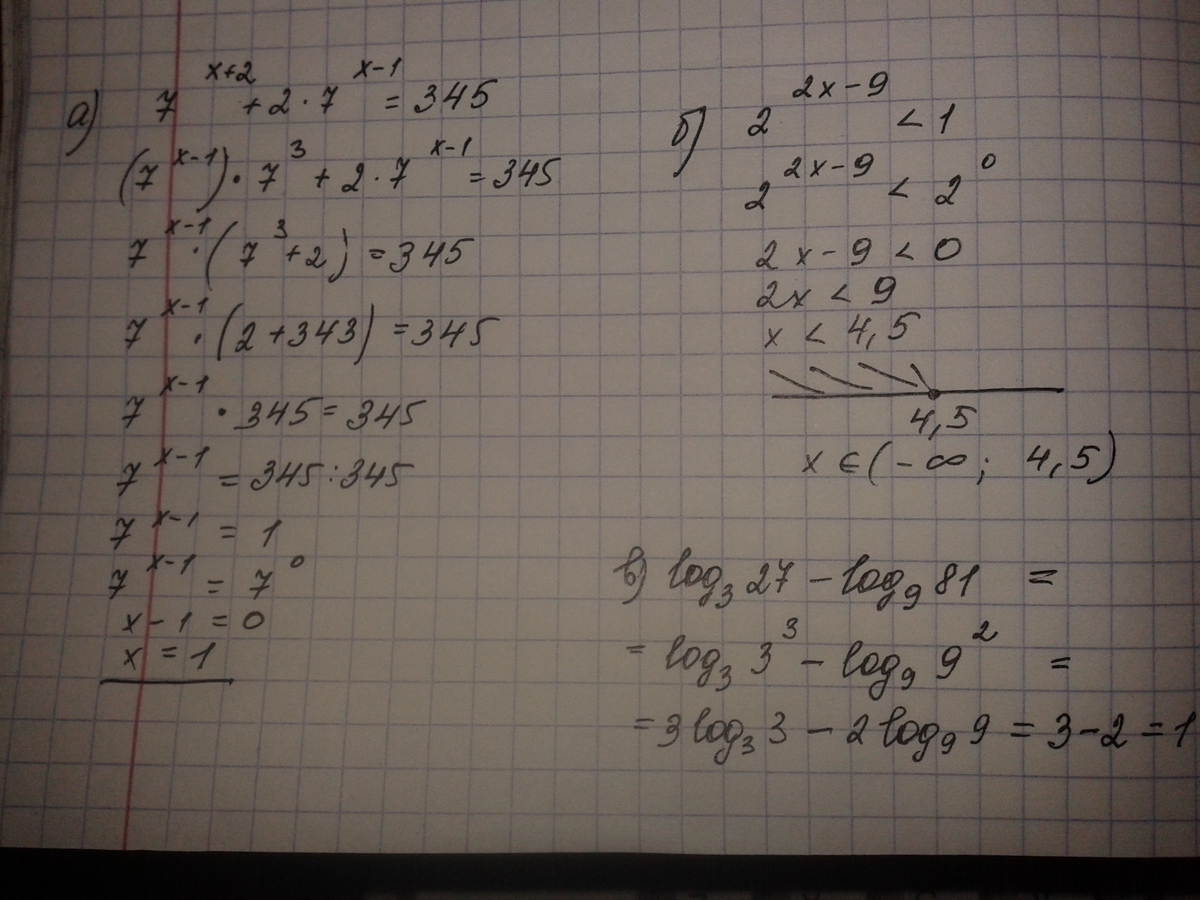 а) 7^(x+2) + 2·7^(x-1) = 345
(7^(x-1))·7^3 + 2·7^(x-1) = 345
7^(x-1)·(7^3+2) = 345
7^(x-1)·(2+343) = 345
7^(x-1)·345 = 345
7^(x-1) = 345:345
7^(x-1) = 1
7^(x-1) = 7^0
x-1 = 0
x = 1
б) 2^(2x-9) < 1
2^(2x-9) < 2^0
2x-9 < 0
2x < 9
x < 4,5
4,5
x ∈ (-∞; 4,5)
в) log₃ 27 - log₉ 81 =
= log₃ 3^3 - log₉ 9^2 =
= 3 log₃ 3 - 2 log₉ 9 = 3-2 = 1